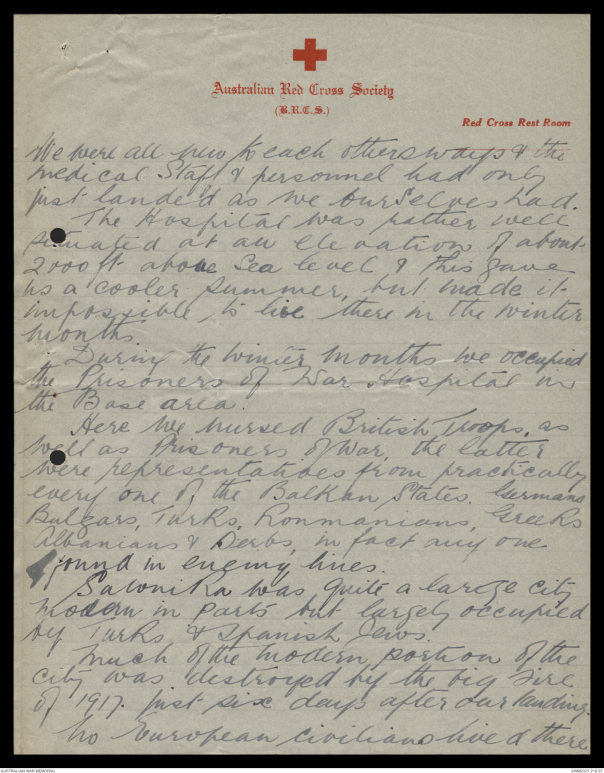 Australian Red Cross Society
(B.R.C.S.)
Red Cross Rest Room
We were all new to each others ways & the
medical Staff & personnel had only
just landed as we ourselves had.
The Hospital was rather well
situated at an elevation of about
2000 ft above Sea level & this gave
us a cooler summer, but made it
impossible, to live there in the winter
months.
During the winter months we occupied
the Prisoners of War Hospital in
the Base area.
Here we nursed British Troops, as
well as Prisoners of War, the latter
were representatives from practically
every one of the Balkan States. Germans
Bulgars, Turks, Roumanians, Greeks
Albanians & Serbs, in fact any one
found in enemy lines.
Salonika was quite a large city
modern in parts but largely occupied
by Turks & Spanish Jews.
Much of the modern portion of the
city was destroyed by the big fire
of 1917. just six days after our landing.
No European civilians lived there
AUSTRALIAN WAR MEMORIAL